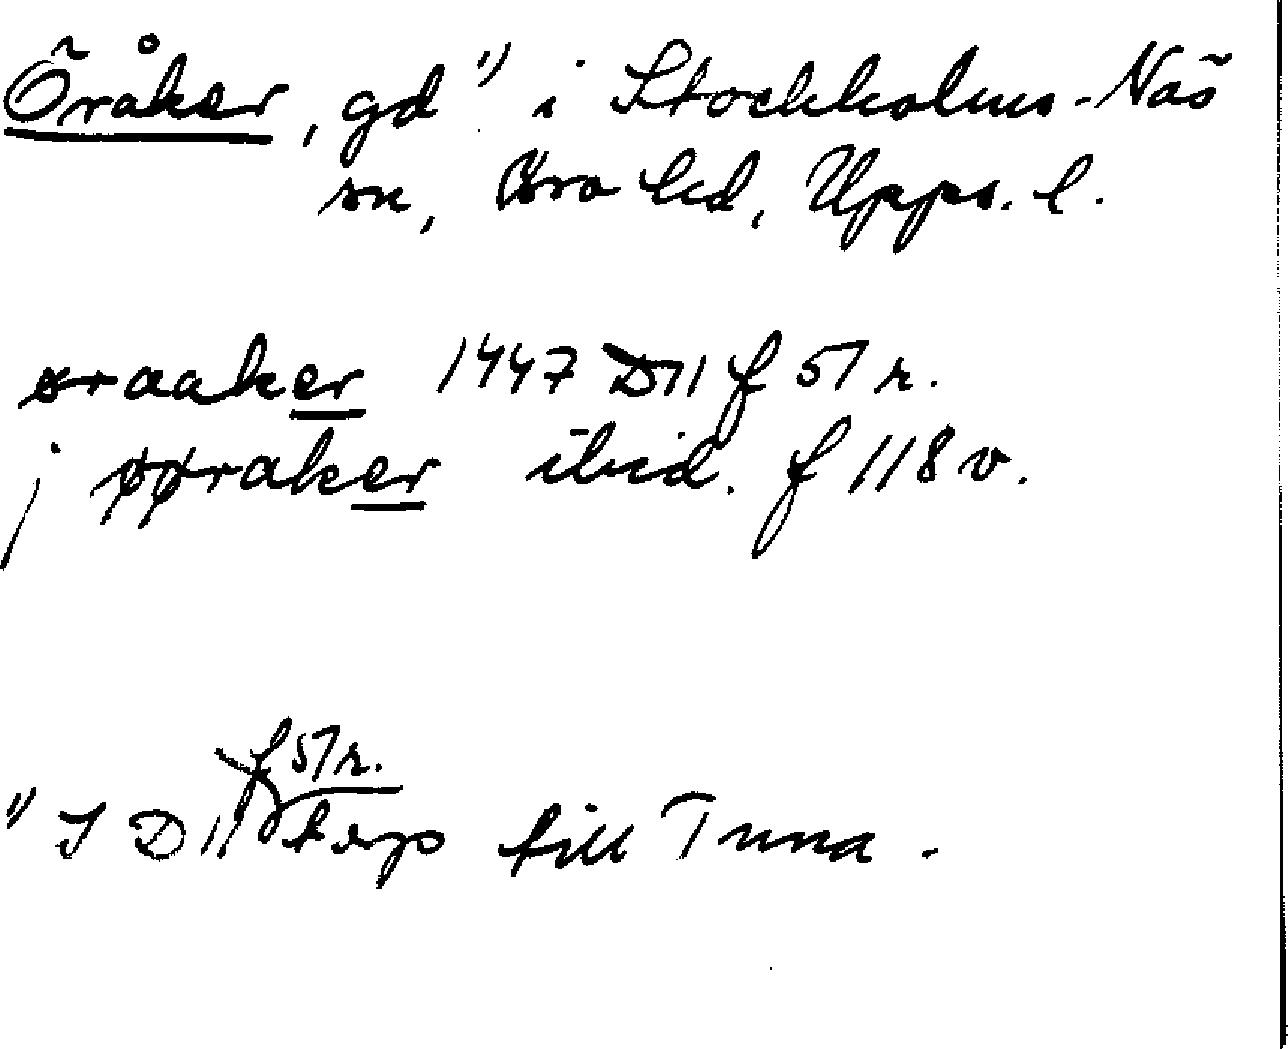 Öråker, gd 1) i Stockholms-Näs
sn, Bro hd, Upps. l.
øraaker 1447 D 11 f 57 r.
j øøraker ibid. f 118 v.
f 57 r.
1) I D 11 torp till Tuna.